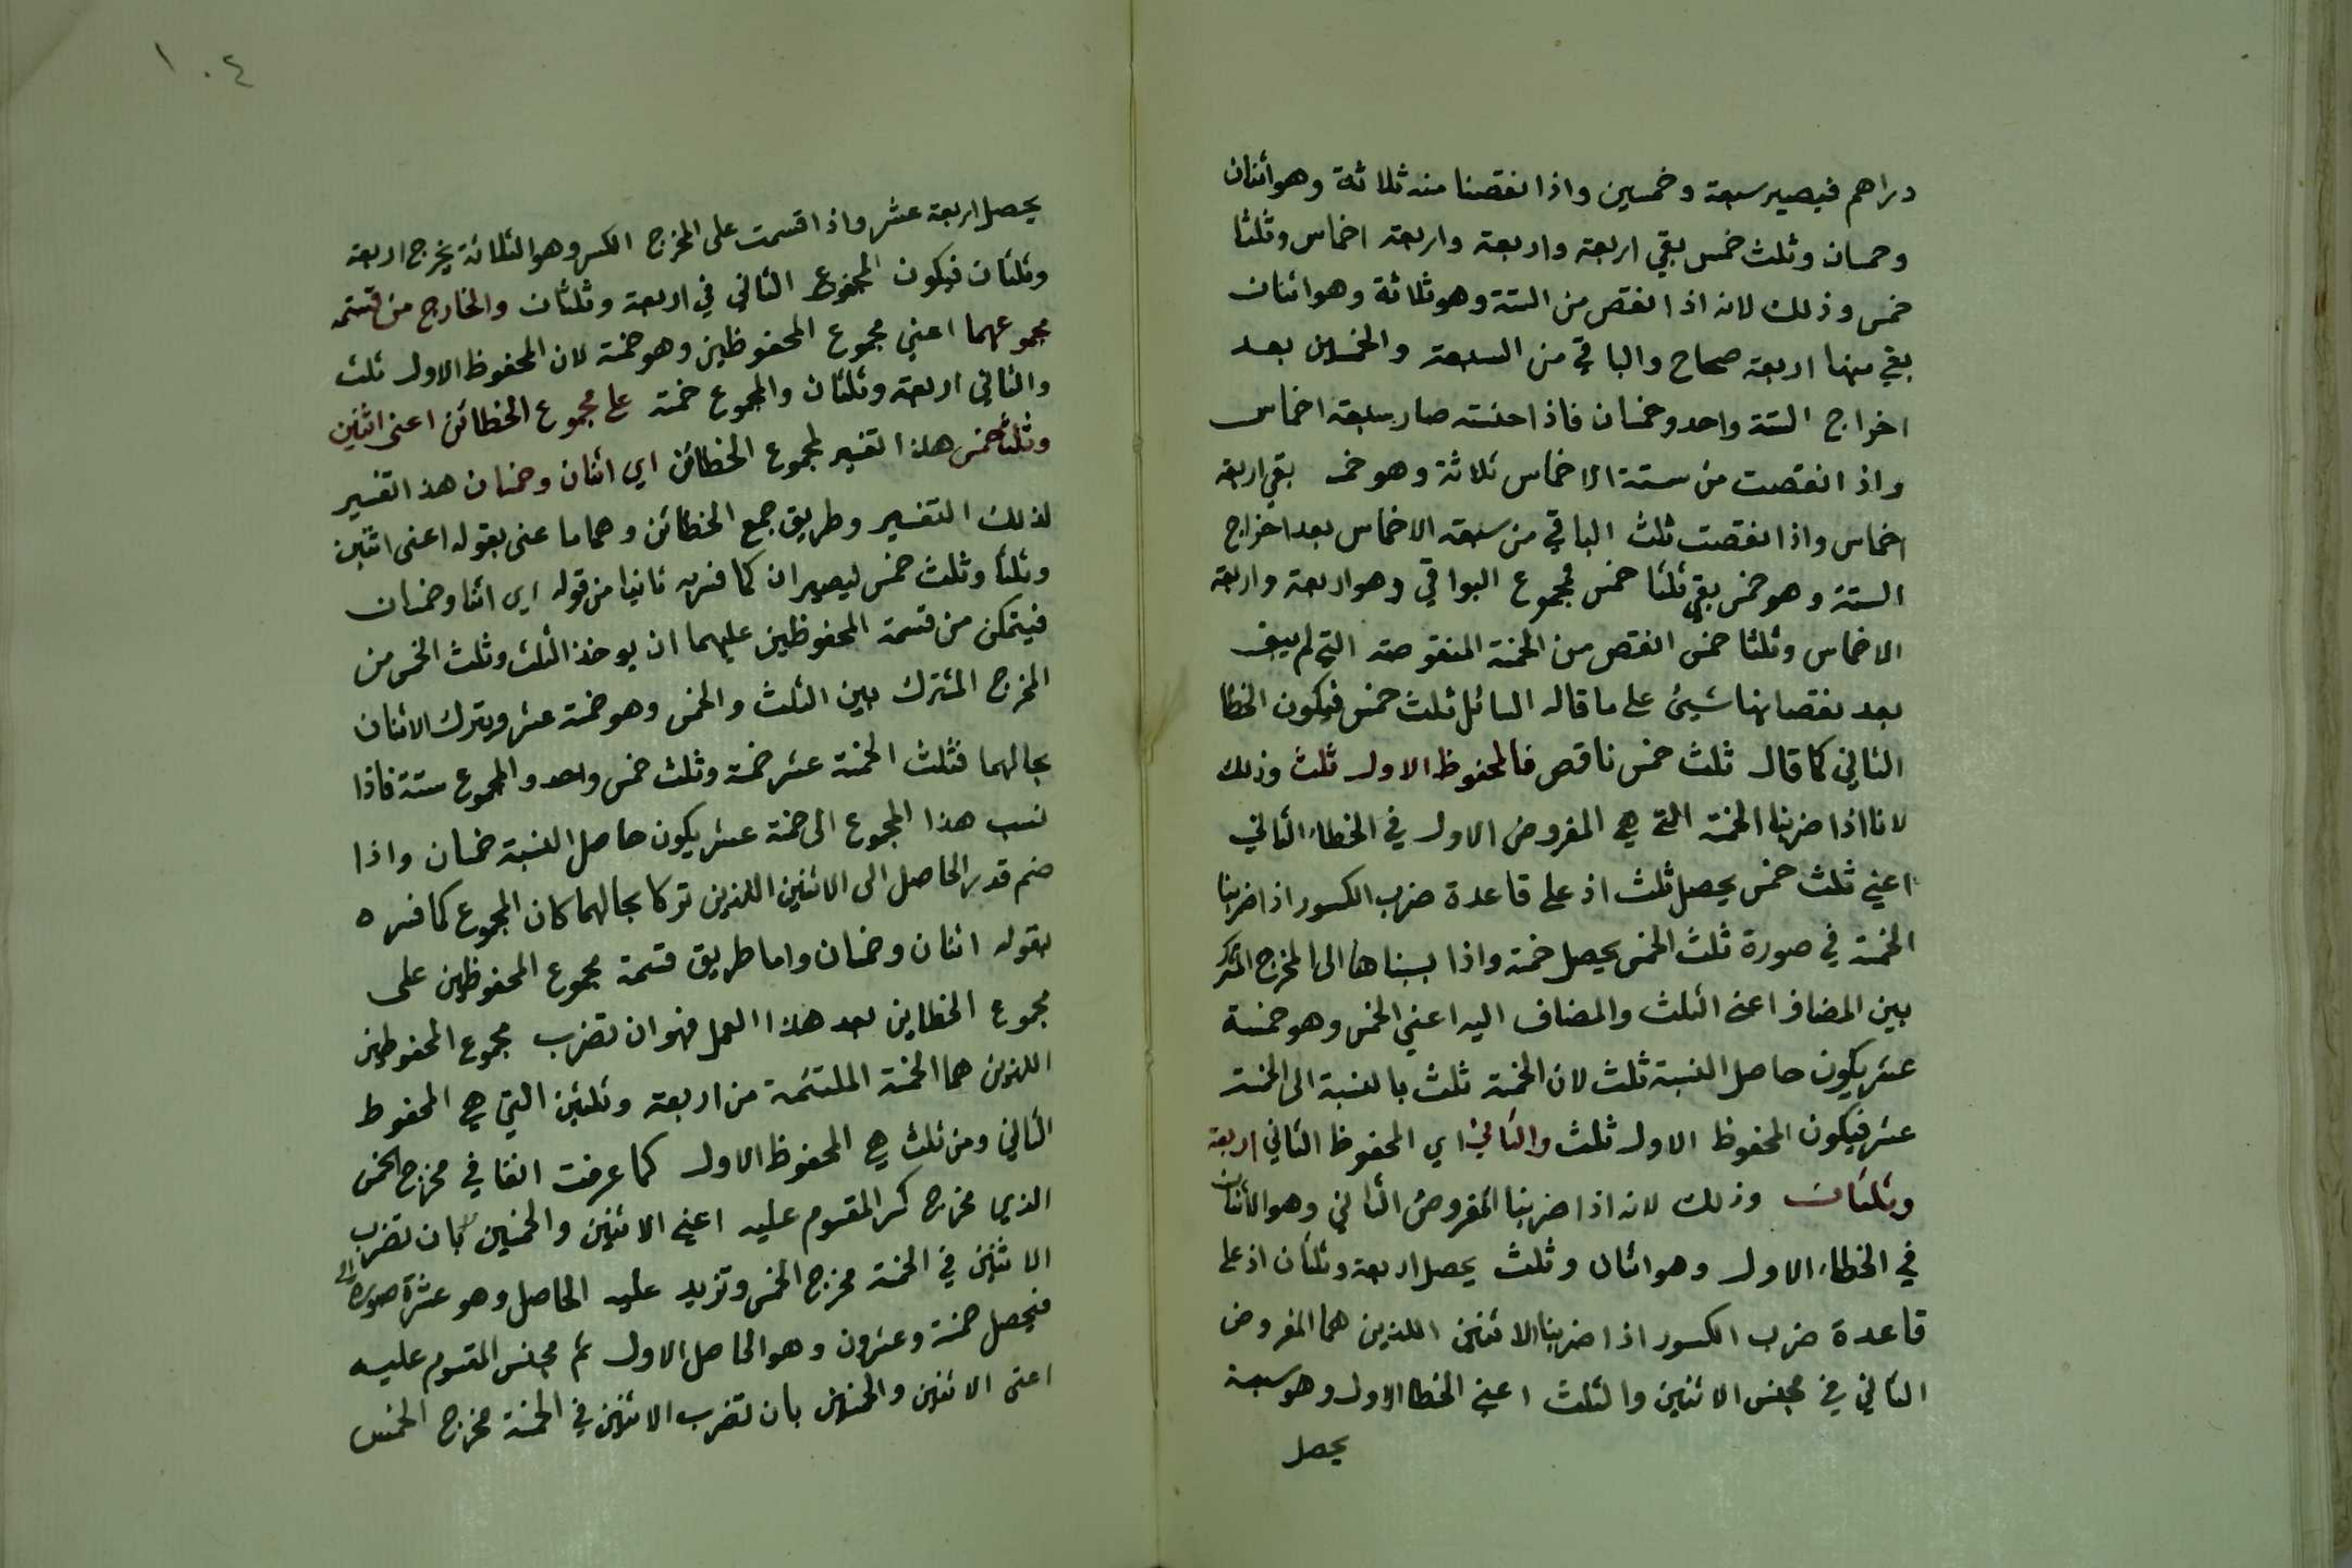 دراهم فيصير سبعة وخمسين واذا نقصنا منه ثلاثة وهو اثنان
وخمسان وثلث خمس بقي اربعة واربعة واربعة اخماس وثلثا
خمس وذلك لانه اذا نقص من الستة وهو ثلاثة وهو اثنان
بقي منها اربعة صحاح والباقي من السبعة والخمسين بعد
اخراج الستة واحد وخمسان فاذا جنسته صار سبعة اخماس
واذا نقصت من ستة الاخماس ثلاثة وهو خمـ بقي اربعة
اخماس واذا نقصت ثلث الباقي من سبعة الاخماس بعد اخراج
الستة وهو خمس بقي ثلثا خمس مجموع البواقي وهو اربعة واربعة
الاخماس وثلثا خمس انقص من الخمسة المنقوصة التي لم يبق
بعد نقصانها شيئ على ما قاله السائل ثلث خمس فيكون الخطا
الثاني كما قال ثلث خمس ناقص فالمحفوظ الاول ثلث وذلك
لانا اذا ضربنا الخمسة التي هي المفروض الاول في الخطاء الثاني
اعني ثلث خمس يحصل ثلث اذ على قاعدة ضرب الكسور اذا ضربنا
الخمسة في صورة ثلث الخمس يحصل خمسة واذا نسبناها الى المخرج المشترك
بين المضاف اعني الثلث والمضاف اليه اعني الخمس وهو خمسة
عشر يكون حاصل النسبة ثلث لان الخمسة ثلث بالنسبة الى الخمسة
عشر فيكون المحفوظ الاول ثلث والثاني اي المحفوظ الثاني اربعة
وثلثان وذلك لانه اذا ضربنا المفروض الثاني وهو الاثنان
في الخطاء الاول وهو اثنان وثلث يحصل اربعة وثلثان اذ على
قاعدة ضرب الكسور اذا ضربنا الاثنين اللذين هما المفروض
الثاني في مجنس الاثنين والثلث اعني الخطا الاول وهو سبعة
يحصل
١٠٤
يحصل اربعة عشر واذا قسمت على المخرج الكسر وهو الثلاثة يخرج اربعة
وثلثان فيكون المحفوظ الثاني في اربعة وثلثان والخارج من قسمة
مجموعهما اعني مجموع المحفوظين وهو خمسة لان المحفوظ الاول ثلث
والثاني اربعة وثلثان والمجموع خمسة على مجموع الخطائن اعنى اثنين
وثلثا خمس هذا تفسير لمجموع الخطائن اي اثنان وخمسان هذا تفسير
لذلك التفسير وطريق جمع الخطائن وهما ما عنى بقوله اعنى اثنين
وثلثا وثلث خمس ليصيران كما فسره ثانيا من قوله اي اثنا وخمسان
فيتمكن من قسمة المحفوظين عليهما ان يوخذ الثلث وثلث الخمس من
المخرج المشترك بين الثلث والخمس وهو خمسة عشر ويترك الاثنان
بحالهما فثلث الخمسة عشر خمسة وثلث خمس واحد والمجموع ستة فاذا
نسب هذا المجموع الى خمسة عشر يكون حاصل النسبة خمسان واذا
ضم قدر الحاصل الى الاثنين اللذين تركا بحالهما كان المجموع كما فسره
بقوله اثنان وخمسان واما طريق قسمة مجموع المحفوظين على
مجموع الخطاين بعد هذا العمل فهو ان تضرب مجموع المحفوظين
اللذين هما الخمسة الملتئمة من اربعة وثلثين التي هي المحفوظ
الثاني ومن ثلث هي المحفوظ الاول كما عرفت انفا في مخرج الخمس
الذي مخرج كسر المقسوم عليه اعني الاثنين والخمسين بان تضرب
الاثنين في الخمسة مخرج الخمس وتزيد عليه الحاصل وهو عشرة صورة
فيحصل خمسة وعشرون وهو الحاصل الاول ثم مجنس المقسوم عليه
اعنى الاثنين والخمسين بان تضرب الاثنين في الخمسة مخرج الخمس